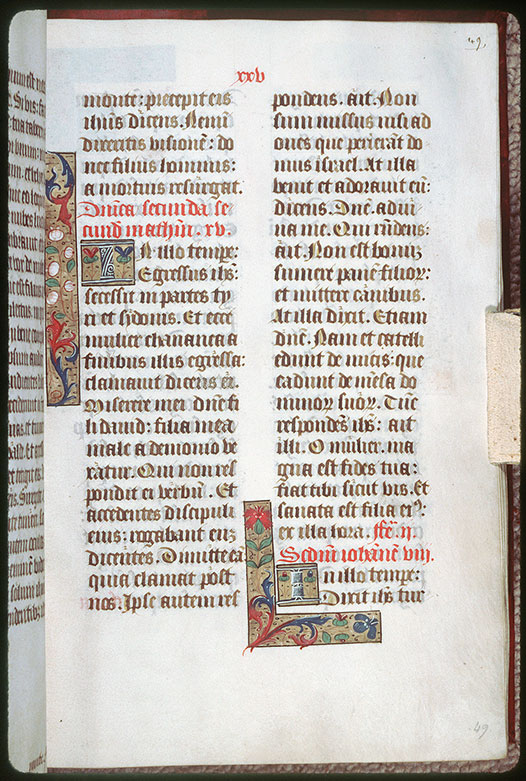 49.
xxv
monte: precepit eis
ihūs dicens. Nemini
dixeritis visionē: do
nec filius hominis:
a mortuis resurgat.
Dnīca secunda se
cund matheū. xv.
In illo tempe:
Egressus ihs:
secessit in partes ty
ri et sydonis. Et ecce
mulier chananea a
finibus illis egressa:
clamavit dicens ei.
Miserere mei dnē fi
li david: filia mea
male a demonio ve
xatur. Qui non res
pondit ei verbū. Et
accedentes discipuli
eius: rogabant eum
dicentes. Dimitte eā
quia clamat post
nos. Ipse autem res
pondens. ait. Non
sum missus nisi ad
oves que perierāt do
mus israel. At illa
venit et adoravit eū:
dicens. Dnē. adiu
va me. Qui rn̄dens:
ait. Non est bonum
sumere panē filior:
et mittere canibus.
At illa dixit. Etiam
dnē. Nam et catelli
edunt de micis: que
cadunt de mēsa do
minor suor. Tūc
respondēs ihs: ait
illi. O mulier. ma
gna est fides tua:
fiat tibi sicut vis. Et
sanata est filia eiꝰ.
ex illa hora. ffe. ij.
Scdm iohannē viij.
In illo tempe:
Dixit ihs tur
49